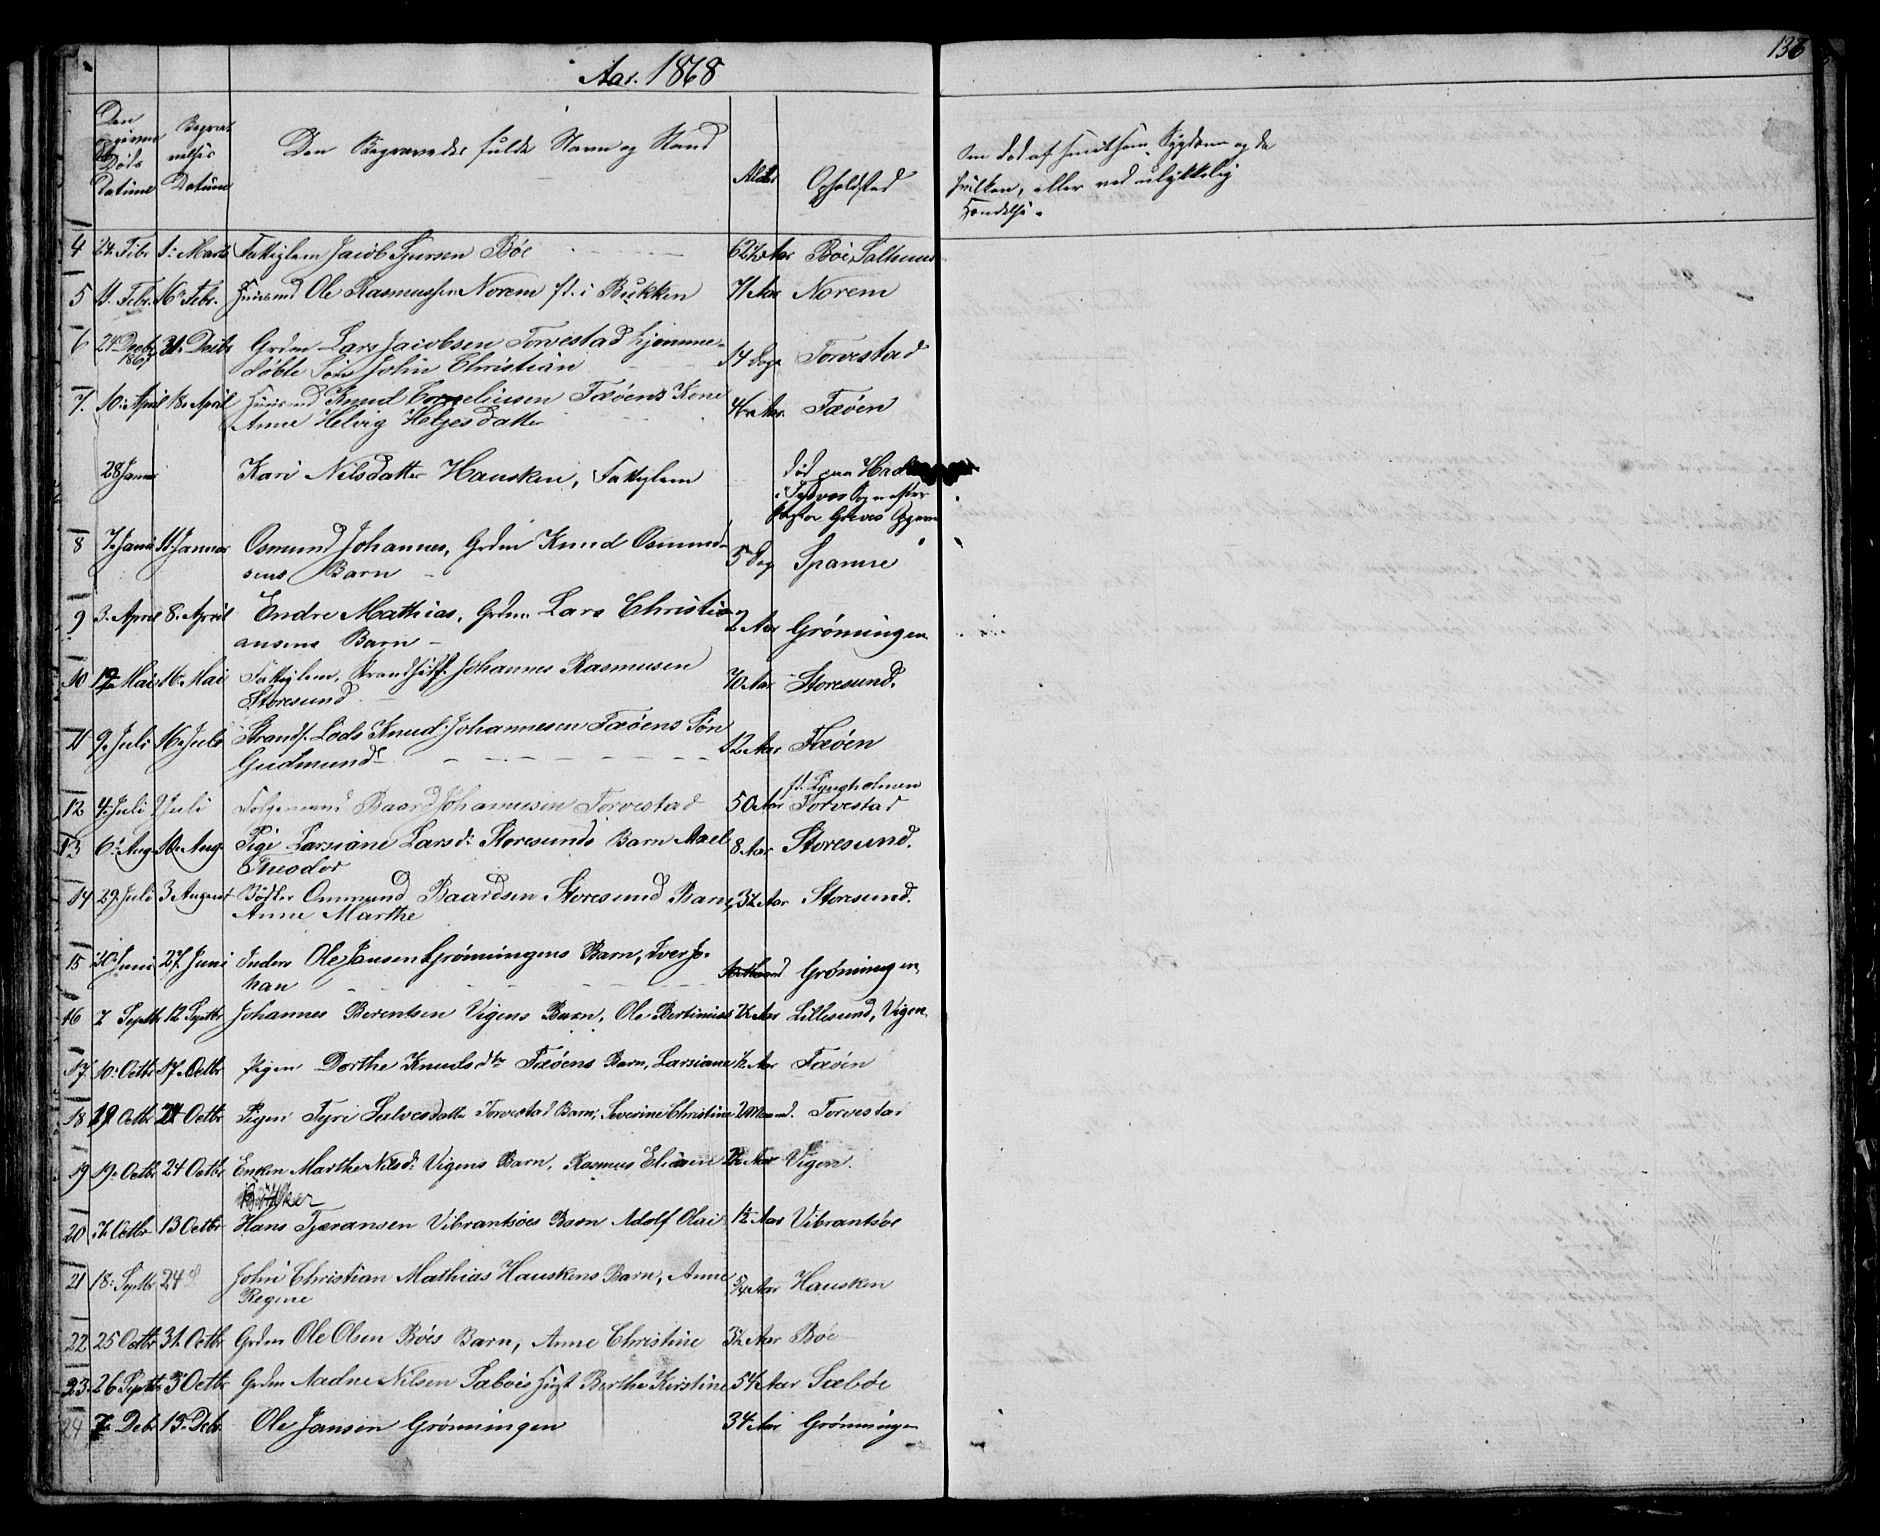 136
Aar. 1868
Den Begravedes fulde Navn og Stand
Alder
Opholdsted
Om död af smitsom Sygdom og da
hvilken, eller ved ulykkelig
Hændelse.
4 24 Febr 1. Marts Fattiglem Jacob Bøe Aar Bøe
5 11. Febr. 16 Febr. Huusmd Ole Rasmussen Norem f. i Bukken 71 Aar Norem
6 24 Decbr 1867 31. Decbr Grdm Lars Jacobsen Torvestad hjemme-
døbte Søn John Christian 14 Dage Torvestad
7. 10. April 18. April Huusmd Knud Cornelius­sen Fæøens Kone
Anne Helvig Helgesdatter Aar Fæøen
28 Januar Kari Nilsdatter Hausken, Fattiglem død paa
8 7. Janr 11 Januar Osmund Johannes, Grdm Knud Osmund-
sens Barn 5 Dag Spanne
9 3. April 8. April Endre Mathias, Grdm. Lars Christi-
ansens Barn 2 Aar Grønningen
10 12 Mai 16. Mai Fattiglem, Johannes Rasmusen
Storesund 70 Aar Storesund.
11 9. Juli 16. Juli Strands. Lods Knud Johannesen Fæøens Søn
Gudmund 12 Aar Fæøen
12 4. Juli Juli Baard Johannesen Torvestad 50 Aar f. Lyngholmen
Torvestad
13 6. Aug. Aug. Pige Larsiane Larsd. Storesunds Barn Axel
Theodor 8 Aar Storesund.
14 29. Juli 3 August Bödker Ommund Baardsen Storesund Barn,
Anne Marthe Aar Storesund.
15 Juni 27 Juni Inders Ole Jansen Grønningens Barn, Iver Jo-
han Grønningen,
16 7 Septb 12 Septbr Johannes Berentsen Vigens Barn, Ole Bertinius Aar Lillesund, Vigen
17 10. Octbr 17 Octbr Pigen Dorthe Knudsdtr Fæøens Barn, Larsiane ½ Aar Fæøen
18 19 Octbr 24 Octbr Pigen Tyri Torvestad Barn, Severine Christine Maaned. Torvestad
19 19. Octbr 24 Octbr Enken Marthe Nilsd. Vigens Barn, Rasmus Eliasen Aar Vigen.
Bödker
20 7. Octbr 13 Octbr Hans Tjeransen Vibrantsøes Barn Adolf Olai 1½ Aar Vibrantsøe
21 18. Septbr 24 John Christian Mathias Hauskens Barn, Anne
Regine 5/4 Aar Hausken
22 25 Octbr 31. Octbr Grdm Ole Olsen Bøes Barn, Anne Christine Aar Bøe
23. 26 Septbr 3 Octbr Grdm Aadne Nilsen Sæbøes Hust Berthe Kirstine 54 Aar Sæbøe
24 7. Debr 13. Debr. Ole Jansen Grønningen 34 Aar Grønningen